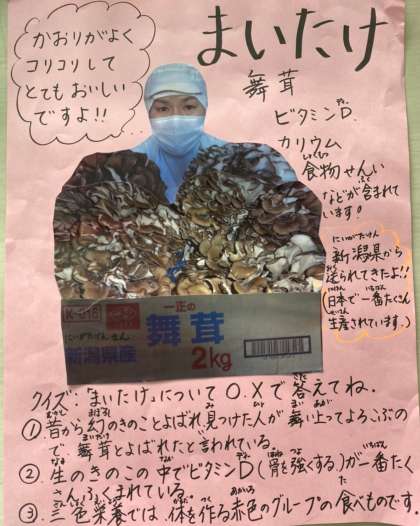 かおりがよく
コリコリして
とてもおいしい
ですよ!!
まいたけ
舞茸
ビタミンD、
カリウム
食物せんい
などが含まれて
います!
新潟県から
送られてきたよ!!
(日本で一番たくさん
生産されています。)
一正の
舞茸
新潟県産
2kg
クイズ:「まいたけ」について○.×で答えてね.
①昔から幻のきのことよばれ見つけた人が舞い上ってよろこぶの
で舞茸とよばれたと言われている。
②生のきのこの中でビタミンD(骨を強くする)が一番たく
さんふくまれている。
③三色栄養では、体を作る赤色のグループの食べものです